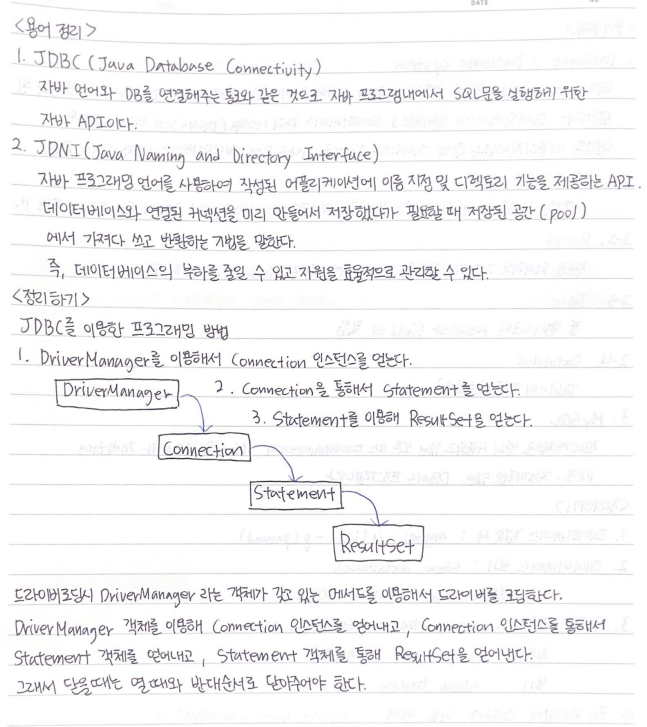 <용어 정리>
1. JDBC (Java Database Connectivity)
자바 언어와 DB를 연결해주는 통로와 같은 것으로 자바 프로그램내에서 SQL문을 실행하기 위한
자바 API이다.
2. JDNI(Java Naming and Directory Interface)
자바 프로그래밍 언어를 사용하여 작성된 어플리케이션에 이름 지정 및 디렉토리 기능을 제공하는 API.
데이터베이스와 연결된 커넥션을 미리 만들어서 저장했다가 필요할 때 저장된 공간(pool)
에서 가져다 쓰고 반환하는 기법을 말한다.
즉, 데이터베이스의 부하를 줄일 수 있고 자원을 효율적으로 관리할 수 있다.
<정리하기>
JDBC를 이용한 프로그래밍 방법
1. DriverManager를 이용해서 Connection 인스턴스를 얻는다.
DriverManager 2. Connection을 통해서 Statement를 얻는다.
3. Statement를 이용해 ResultSet을 얻는다.
Connection
Statement
ResultSet
드라이버로딩시 DriverManager 라는 객체가 갖고 있는 메서드를 이용해서 드라이버를 로딩한다.
DriverManager 객체를 이용해 Connection 인스턴스를 얻어내고, Connection 인스턴스를 통해서
Statement 객체를 얻어내고, Statement 객체를 통해 ResultSet을 얻어낸다.
그래서 닫을때는 열때와 반대순서로 닫아주어야 한다.